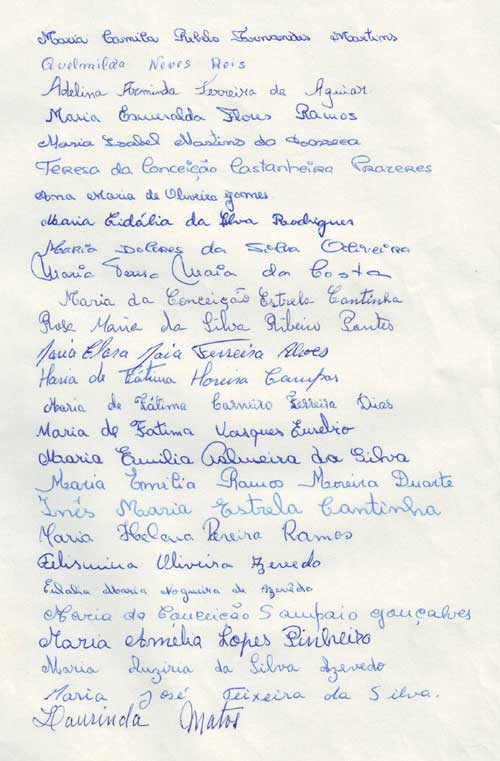 Maria Camila Ribelo Fernandes Martins
Quelmilda Neves Reis
Adelina Arminda Ferreira de Aguiar
Maria Esmeralda Flores Ramos
Maria Isabel Martins da Fonseca
Teresa da Conceição Castanheira Prazeres
Ana Maria de Oliveira gomes
Maria Eidália da Silva Rodrigues
Maria Dolores da Silva Oliveira
Maria Teresa Maia da Costa
Maria da Conceição Estrela Cantinha
Rosa Maria da Silva Ribeiro Pontes
Maria Clara Maia Ferreira Alves
Maria de Fátima Moreira Campos
Maria de Fátima Carneiro Ferreira Dias
Maria de Fatima Vasques Eusebio
Maria Emilia Palmeira da Silva
Maria Emilia Ramos Moreira Duarte
Inês Maria Estrela Cantinha
Maria Helena Pereira Ramos
Felismina Oliveira Azevedo
Eidalia Maria Nogueira de Azevêdo
Maria da Conceição Sampaio gonçalves
Maria Amélia Lopes Pinheiro
Maria Auzíria da Silva Azevedo
Maria José Teixeira da Silva.
Laurinda Matos